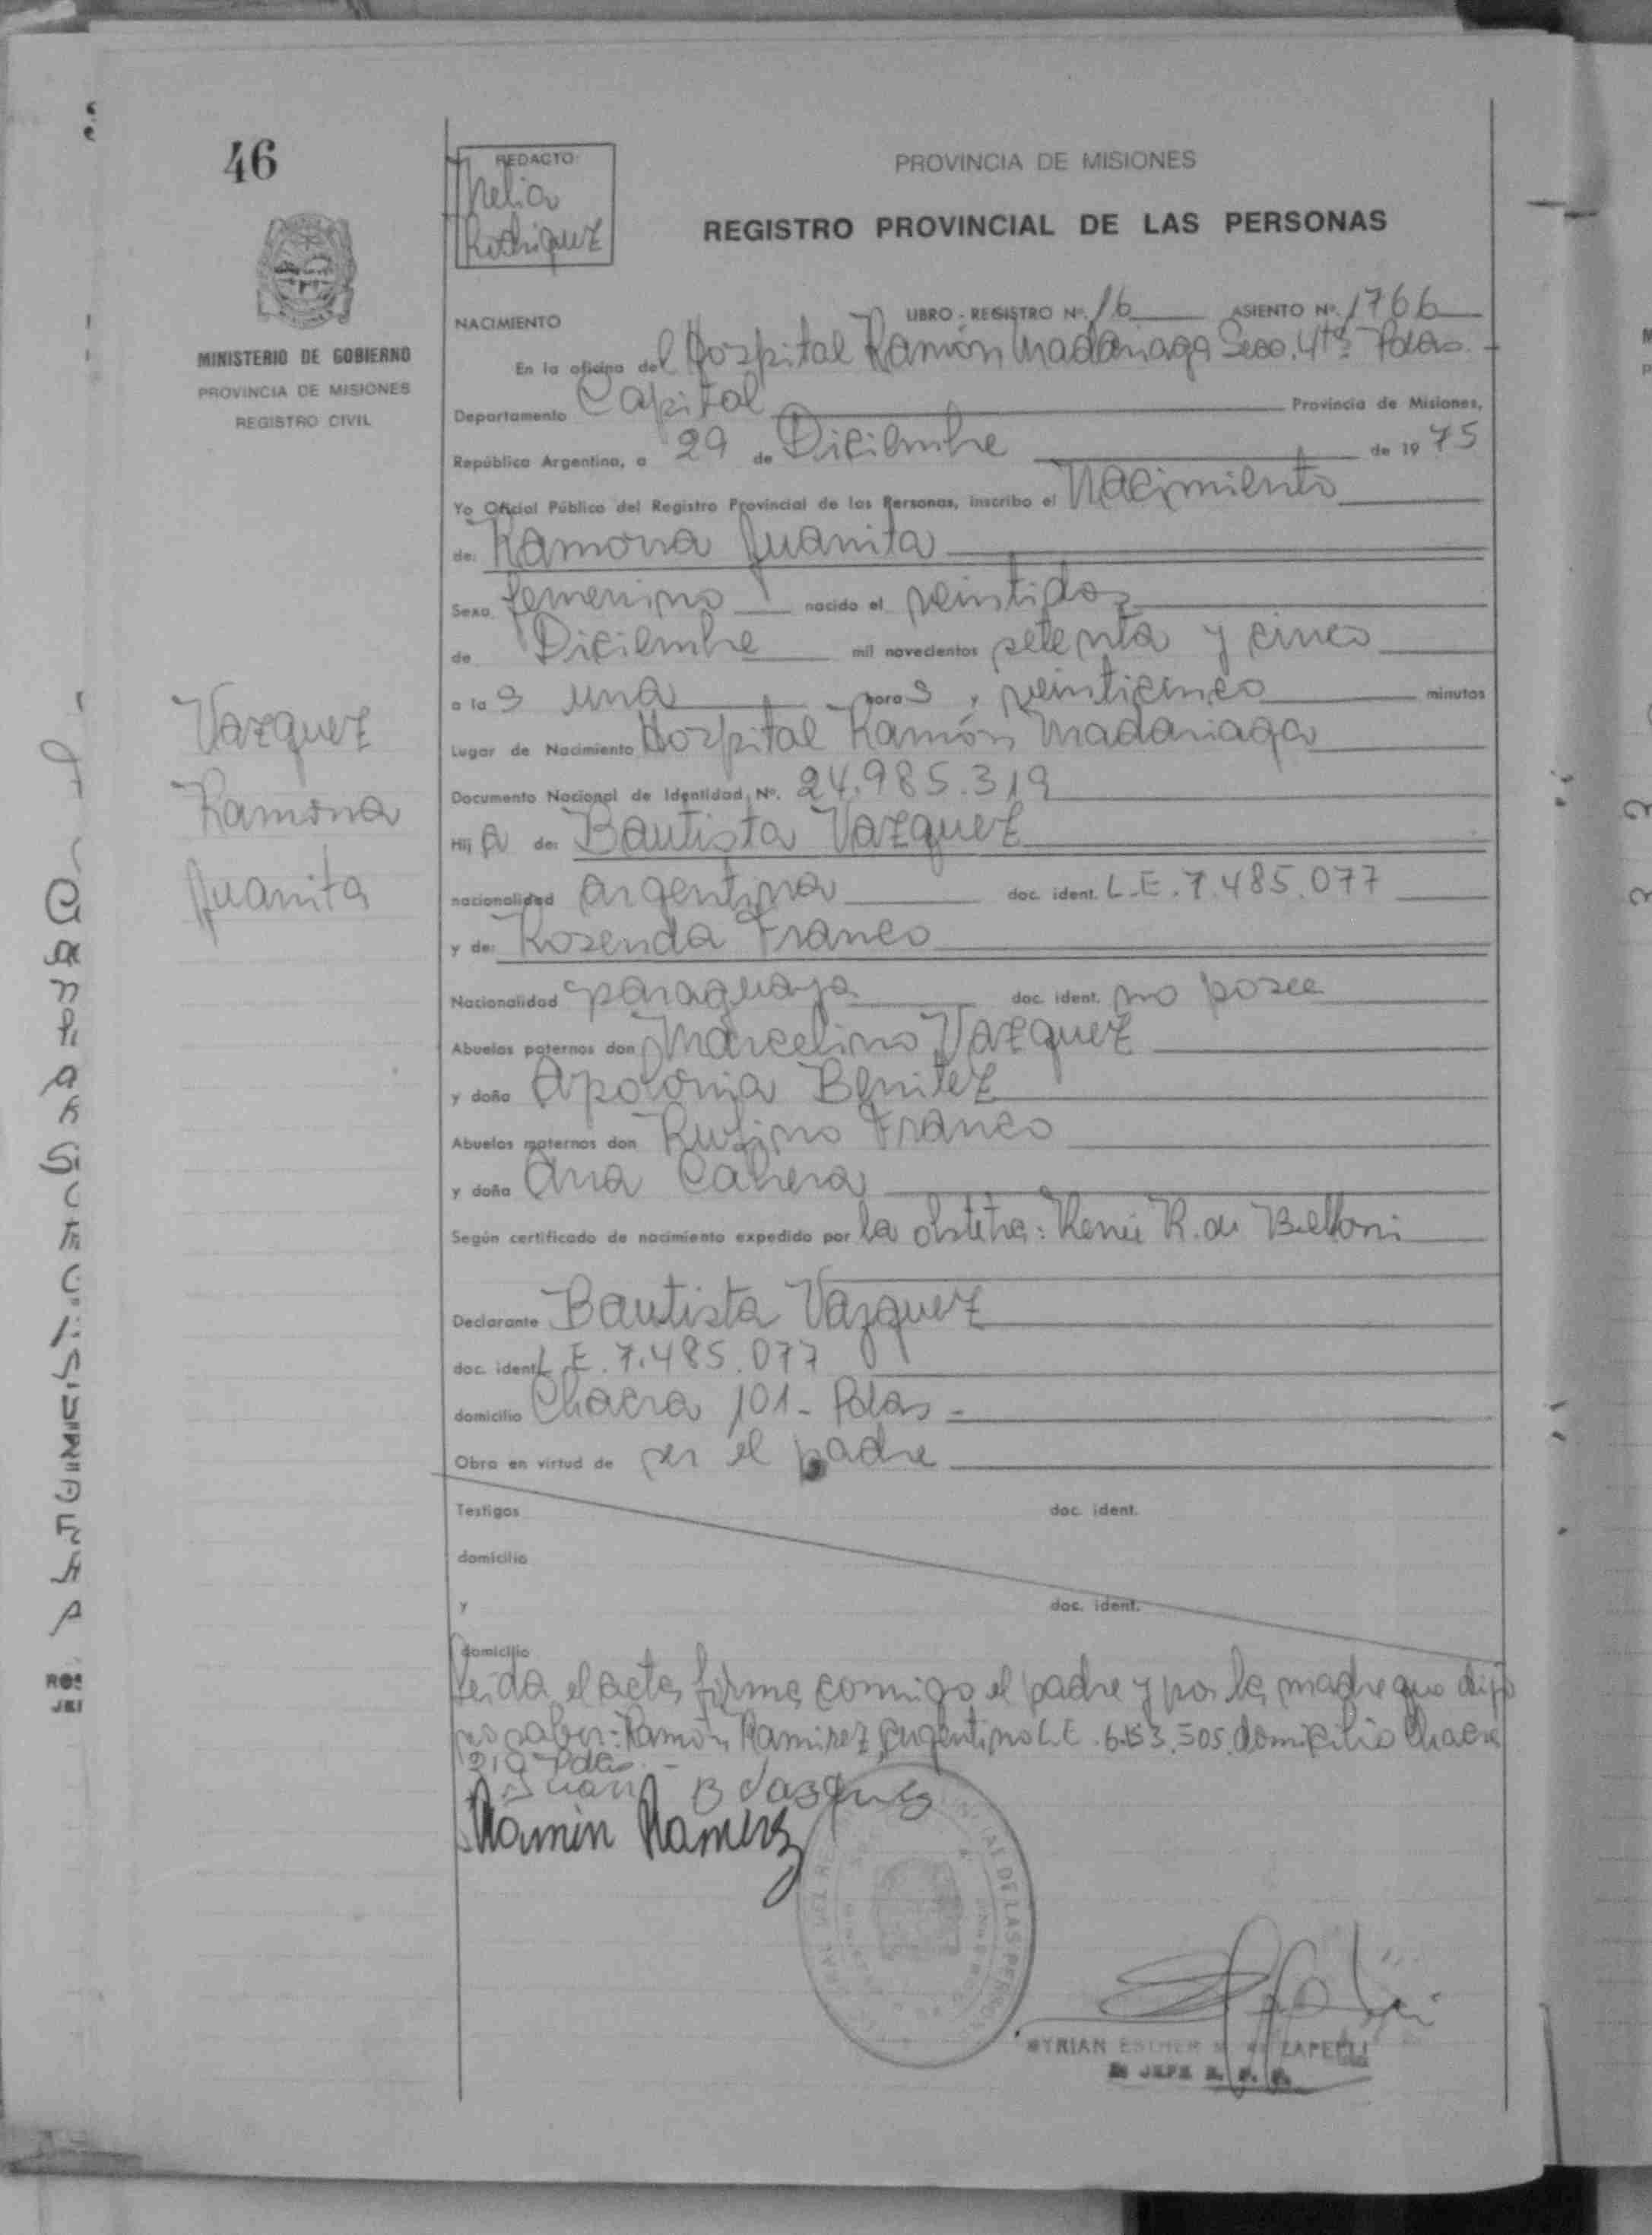 46
MINISTERIO DE GOBIERNO
PROVINCIA DE MISIONES
REGISTRO CIVIL
Vazquez
Ramona
Juanita
REDACTO:
Nelia
Rodriguez
PROVINCIA DE MISIONES
REGISTRO PROVINCIAL DE LAS PERSONAS
NACIMIENTO LIBRO - REGISTRO Nº. 16 ASIENTO Nº. 1766
En la oficina del Hospital Ramón Madariaga Secc. 4ta Pdas.
Departamento Capital Provincia de Misiones,
República Argentina, a 29 de Diciembre de 1975
Yo Oficial Público del Registro Provincial de las Personas, inscribo el Nacimiento
de: Ramona Juanita
Sexo femenino nacido el veintidos
de Diciembre mil novecientos setenta y cinco
a las una horas, veinticinco minutos
Lugar de Nacimiento Hospital Ramón Madariaga
Documento Nacional de Identidad, Nº. 24.985.319
Hija de: Bautista Vazquez
nacionalidad argentina doc. ident. L.E. 7.485.077
y de: Rosenda Franco
Nacionalidad paraguaya doc. ident. no posee
Abuelos paternos don Marcelino Vazquez
y doña Apolonia Benitez
Abuelos maternos don Rufino Franco
y doña Ana Cabrera
Según certificado de nacimiento expedido por la obstetra: Renée R. de
Declarante Bautista Vazquez
doc. ident. L.E. 7.485.077
domicilio Chacra 101 - Pdas -
Obra en virtud de ser el padre
Testigos doc. ident.
domicilio
y doc. ident.
domicilio
Leida el acta, firma conmigo el padre y por la madre que dijo
no saber: Ramón Ramirez, argentino L.E. 6.153.505. domicilio Chacra
219 Pdas. -
Juan B Vasques
Ramon Ramirez
DE LAS PERSONAS
MYRIAN ESTHER M. de ZAPELLI
JEFE R. P. P.